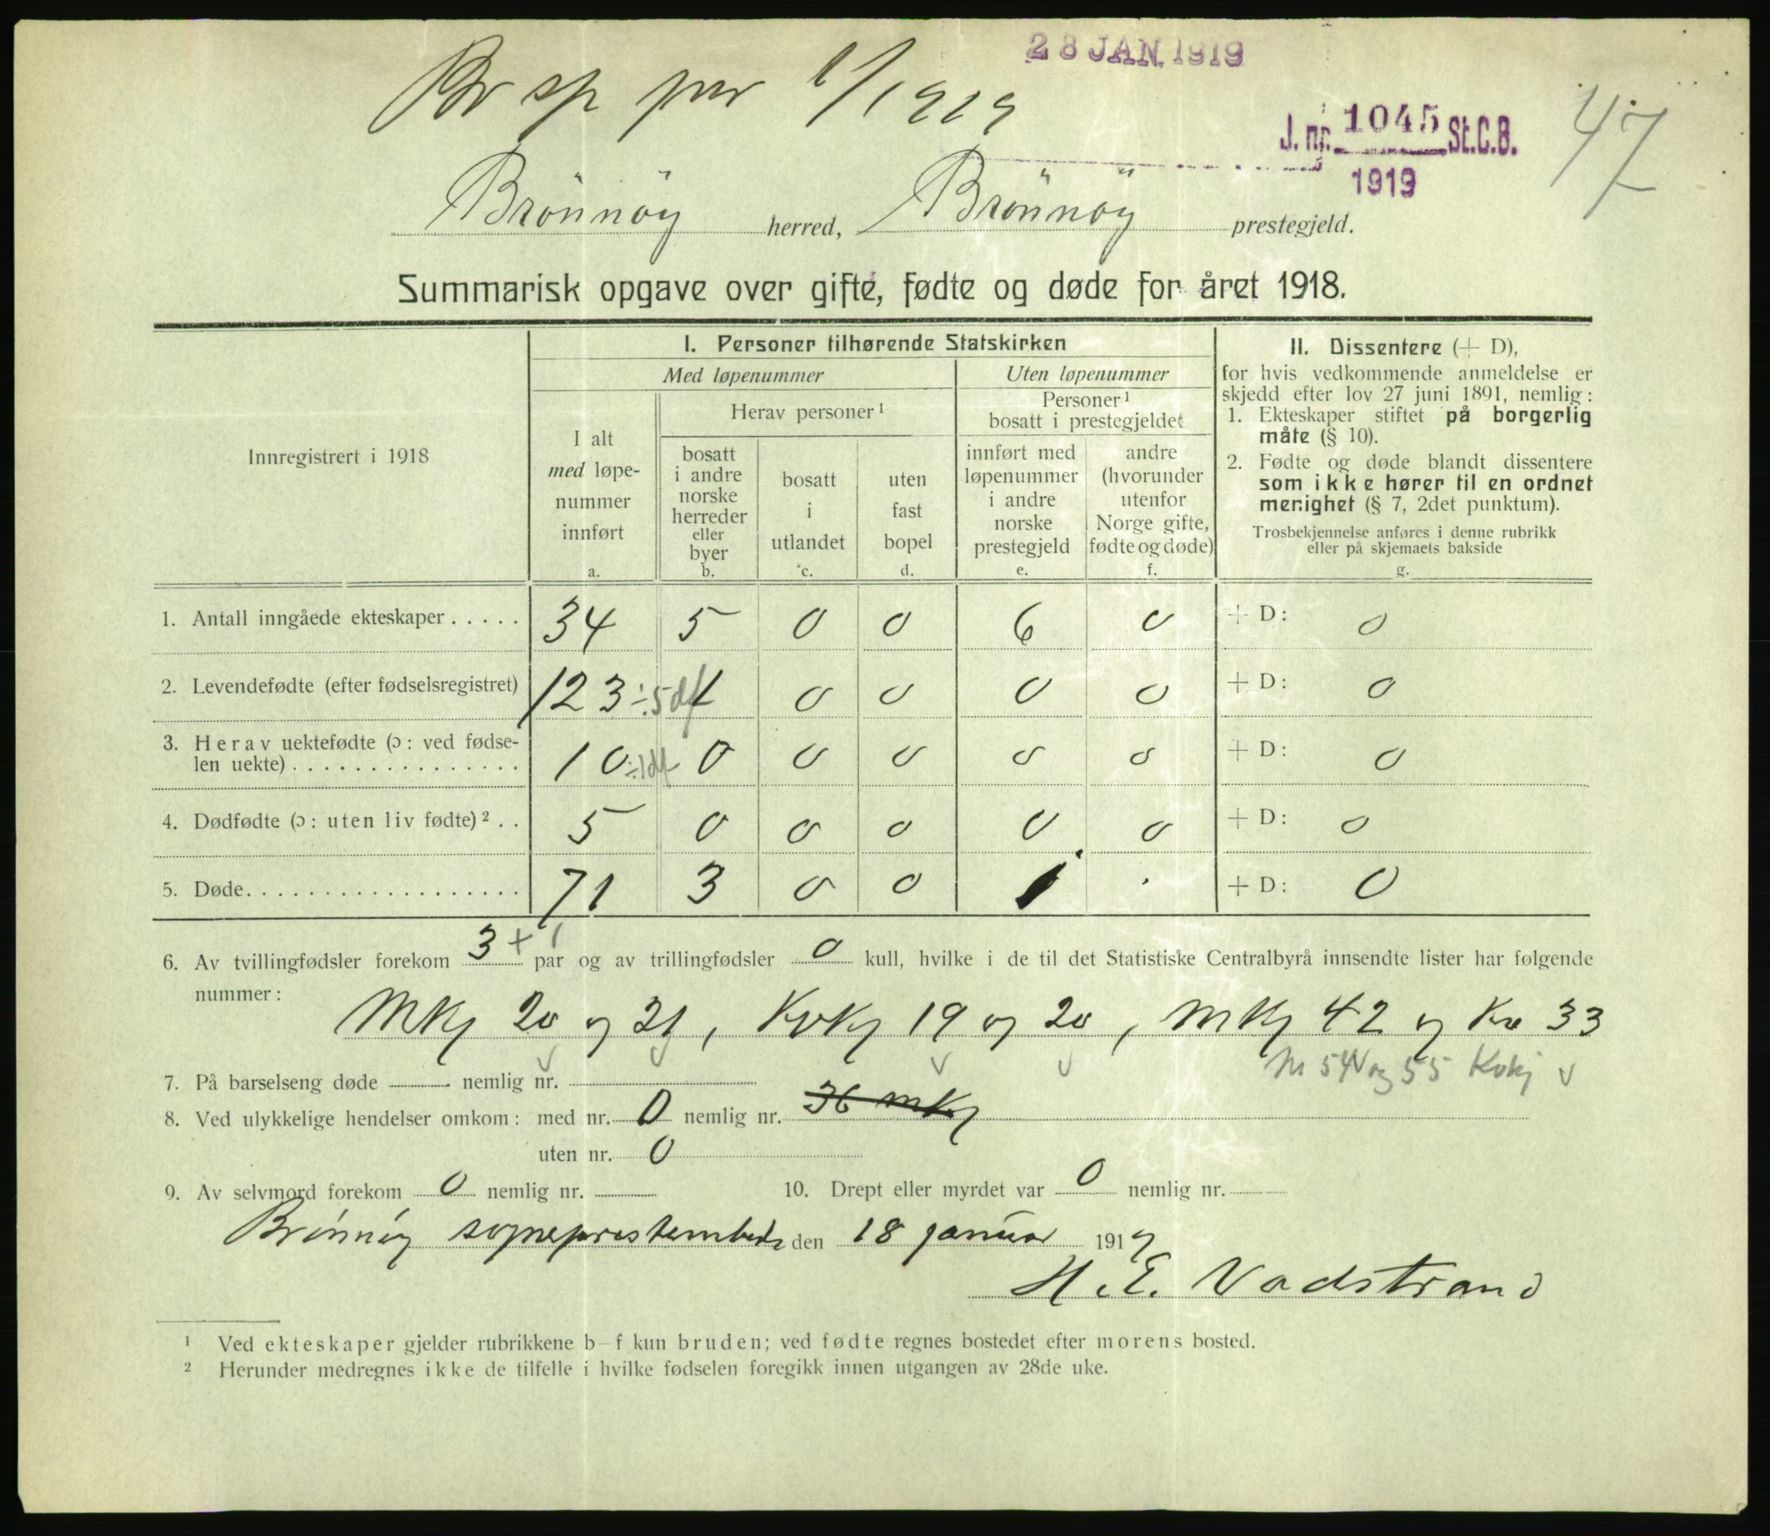 28 JAN 1919
J. nr. 1045 St.C.B.
1919
47
Brönnöy herred, Brönnöy prestegjeld.
Summarisk opgave over gifte, fødte og døde for året 1918.
Innregistrert i 1918
I. Personer tilhørende Statskirken
Med løpenummer
Uten løpenummer
I alt
med løpe-
nummer
innført
a.
Herav personer¹
bosatt
i andre
norske
herreder
eller
byer
b.
bosatt
i
utlandet
c.
uten
fast
bopel
d.
Personer¹
bosatt i prestegjeldet
innført med
løpenummer
i andre
norske
prestegjeld
e.
andre
(hvorunder
utenfor
Norge gifte,
fødte og døde)
f.
II. Dissentere (+ D),
for hvis vedkommende anmeldelse er
skjedd efter lov 27 juni 1891, nemlig:
1. Ekteskaper stiftet på borgerlig
måte (§ 10).
2. Fødte og døde blandt dissentere
som ikke hører til en ordnet
menighet (§ 7, 2det punktum).
Trosbekjennelse anføres i denne rubrikk
eller på skjemaets bakside
g.
1. Antall inngåede ekteskaper . . . . . 34 5 0 0 6 0 + D: 0
2. Levendefødte (efter fødselsregistret) 123 ÷5 df 1 0 0 0 0 + D: 0
3. Herav uektefødte (ɔ: ved fødse-
len uekte) . . . . . . . . . . . . . . . 10 ÷1 df 0 0 0 0 0 + D: 0
4. Dødfødte (ɔ: uten liv fødte)² . . 5 0 0 0 0 0 + D: 0
5. Døde. . . . . . . . . . . . . . . . . . 71 3 0 0 1 . + D: 0
6. Av tvillingfødsler forekom 3 + 1 par og av trillingfødsler 0 kull, hvilke i de til det Statistiske Centralbyrå innsendte lister har følgende
nummer:
MKj 20 og 21, KvKj 19 og 20, MKj 42 og Kv 33
M 54 og 55 Kvkj
7. På barselseng døde nemlig nr.
8. Ved ulykkelige hendelser omkom: med nr. 0 nemlig nr. 36 MKj
uten nr. 0
9. Av selvmord forekom 0 nemlig nr. 10. Drept eller myrdet var 0 nemlig nr.
Brönnöy sogneprestembede den 18 januar 1919
H. E. Vadstrand
¹ Ved ekteskaper gjelder rubrikkene b–f kun bruden; ved fødte regnes bostedet efter morens bosted.
² Herunder medregnes ikke de tilfelle i hvilke fødselen foregikk innen utgangen av 28de uke.